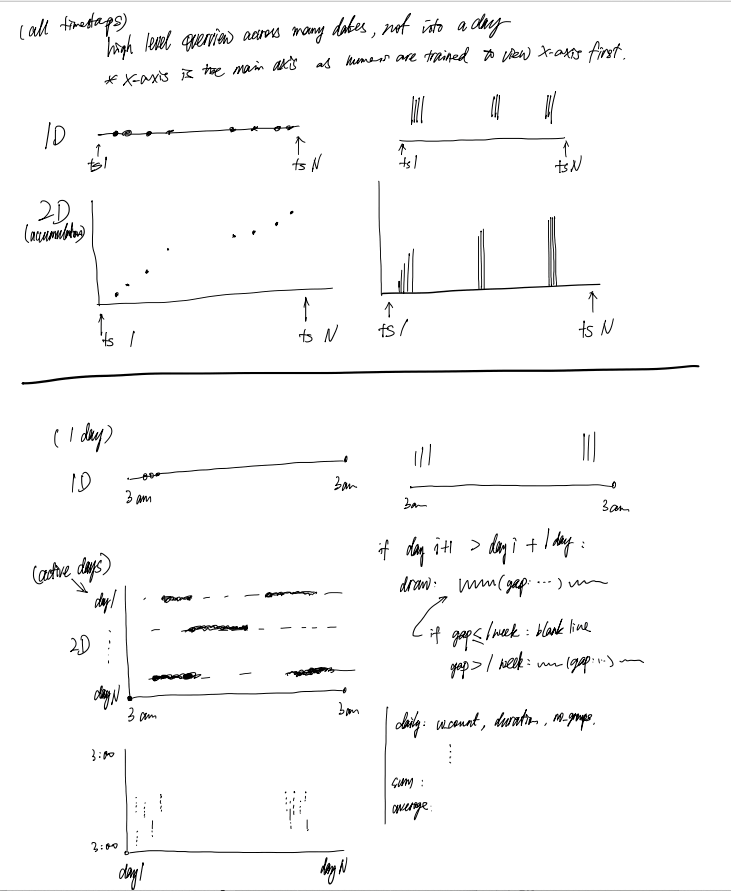 (all timestaps)
high level overview across many dates, not into a day
* x-axis is the main axis as human are trained to view x-axis first.
1D
ts1
ts N
ts1
ts N
2D
(accumulators)
ts 1
ts N
ts 1
ts N
(1 day)
1D
3 am
3 am
3 am
3 am
if day i+1 > day i + 1 day :
draw: (gap ...)
if gap ≤ 1 week : blank line
gap > 1 week : (gap ...)
(active days)
day 1
2D
day N
3 am
3 am
daily: w_count, duration, no_groups.
sum :
average:
3:00
3:00
day 1
day N